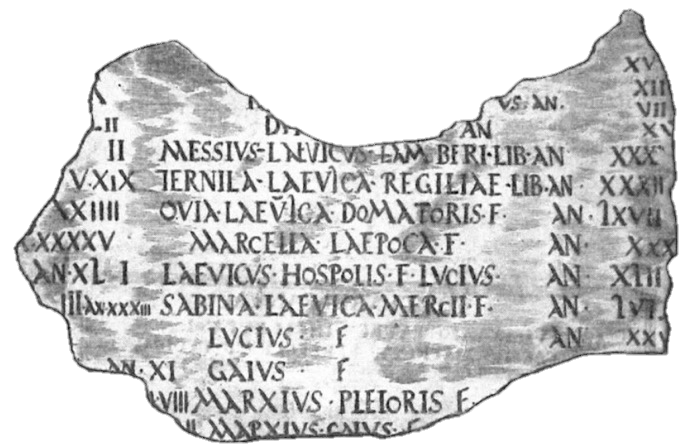 XV
XII
VS. AN. VII
II AN XV
II MESSIVS·LAEVICVS·LAM BERI·LIB·AN XXX
V·XIX TERNILA·LAEVICA·REGILIAE·LIB·AN· XXXXII
XXIIII OVIA·LAEVICA·DOMATORIS·F· AN· LXVII
XXXXV MARCELLA·LAEPOCA·F· AN· XXX
AN·XL I LAEVICVS·HOSPOLIS·F·LVCIVS· AN· XLIII
III AX·XXXIII SABINA·LAEVICA·MERCII·F· AN· LVI
LVCIVS· F AN XXV
AN·XI GAIVS· F
VIII MARXIVS·PLEIORIS F·
II MARXIVS·GAIVS·F·